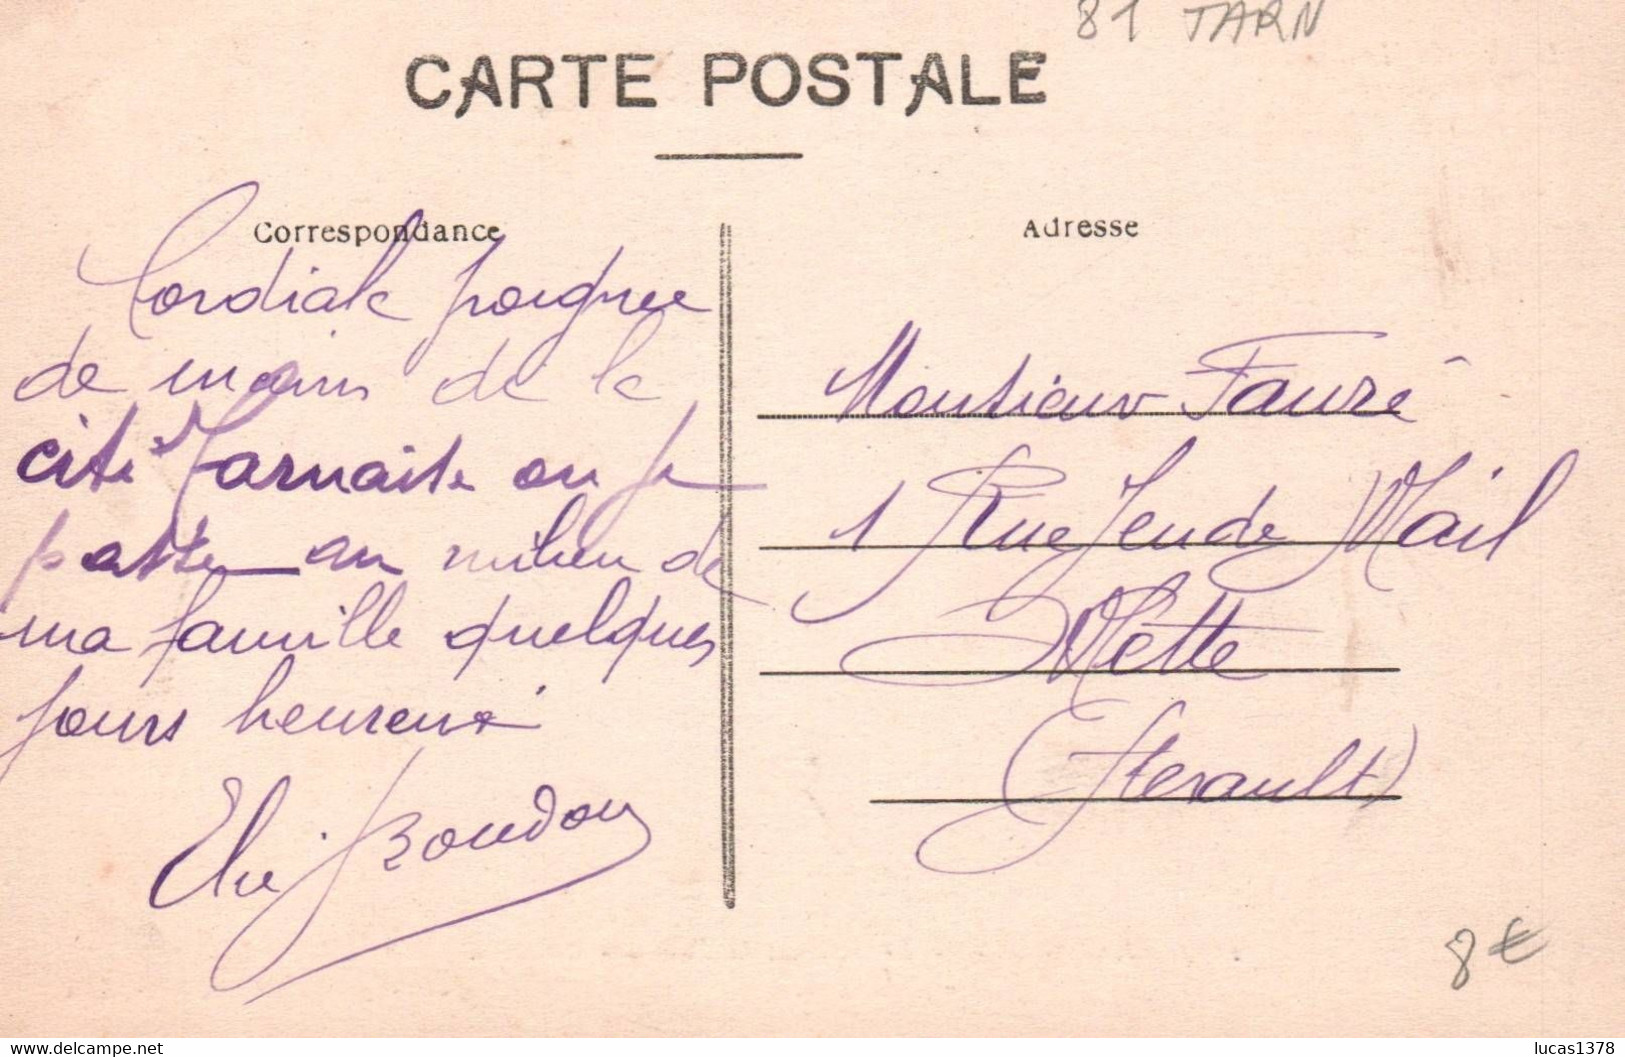 81 TARN
CARTE POSTALE
Correspondance
Adresse
Cordiale poignee
de mains de la
cité Tarnaise ou je
passe au milieu de
ma famille quelques
jours heureux
Elie Boudou
Monsieur Fauré
1 Rue Jeu de Mail
Mèze
(Herault)
8€
lucas1378